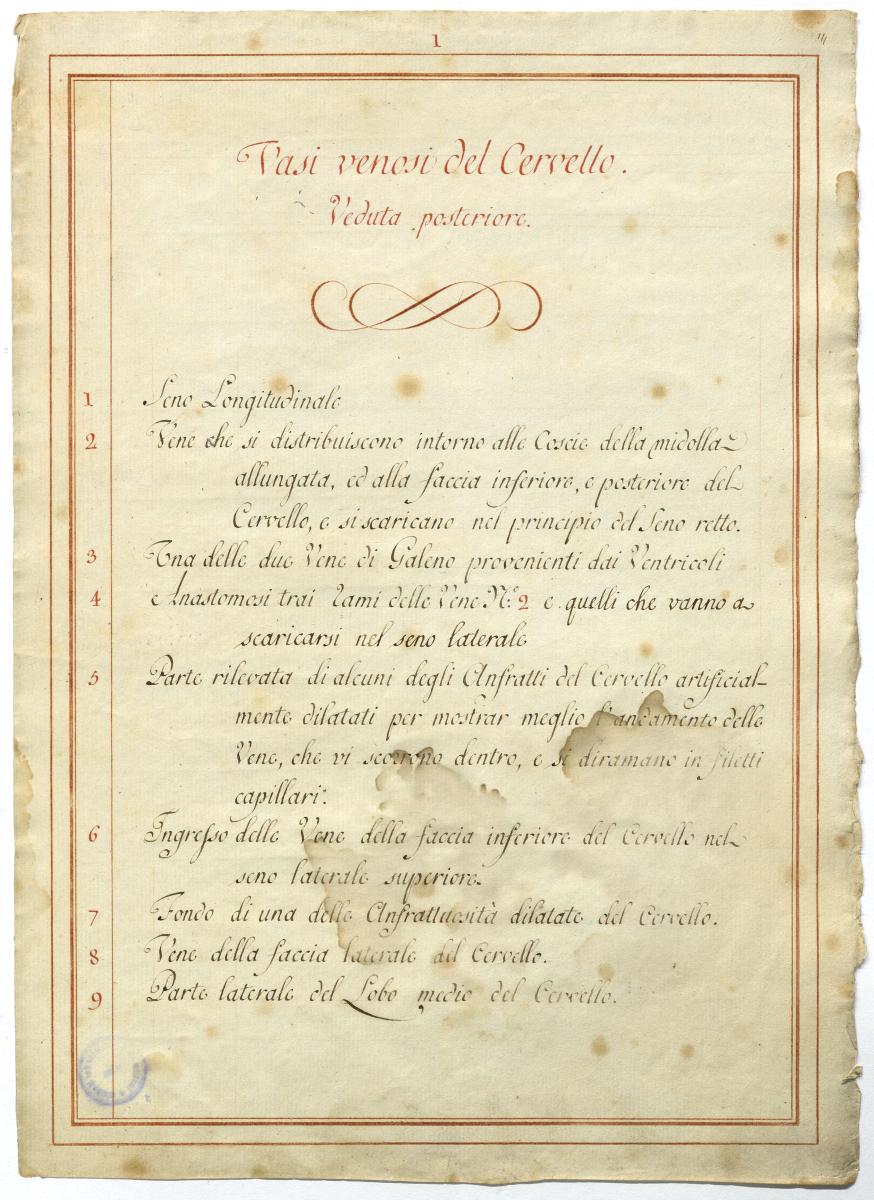 1
Vasi venosi del Cervello.
Veduta posteriore.
1 Seno Longitudinale
2 Vene che si distribuiscono intorno alle Coscie della midolla
allungata, ed alla faccia inferiore, e posteriore del
Cervello, e si scaricano nel principio del Seno retto.
3 Una delle due Vene di Galeno provenienti dai Ventricoli
4 Anastomosi trai rami delle Vene N.º 2 e quelli che vanno a
scaricarsi nel seno laterale
5 Parte rilevata di alcuni degli Anfratti del Cervello artificial-
mente dilatati per mostrar meglio l'andamento delle
Vene, che vi scorrono dentro, e si diramano in filetti
capillari.
6 Ingresso delle Vene della faccia inferiore del Cervello nel
seno laterale superiore.
7 Fondo di una delle Anfrattuosità dilatate del Cervello.
8 Vene della faccia laterale del Cervello.
9 Parte laterale del Lobo medio del Cervello.